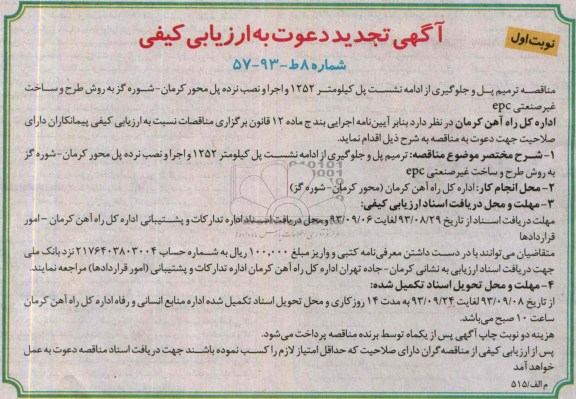 نوبت اول
آگهی تجدید دعوت به ارزیابی کیفی
شماره ۸ط-۹۳-۵۷
مناقصه ترمیم پل و جلوگیری از ادامه نشست پل کیلومتر ۱۲۵۲ و اجرا و نصب نرده پل محور کرمان-شوره گز به روش طرح و ساخت
غیرصنعتی epc
اداره کل راه آهن کرمان در نظر دارد بنابر آیین‌نامه اجرایی بند ج ماده ۱۲ قانون برگزاری مناقصات نسبت به ارزیابی کیفی پیمانکاران دارای
صلاحیت جهت دعوت به مناقصه به شرح ذیل اقدام نماید.
۱- شرح مختصر موضوع مناقصه: ترمیم پل و جلوگیری از ادامه نشست پل کیلومتر ۱۲۵۲ و اجرا و نصب نرده پل محور کرمان-شوره گز
به روش طرح و ساخت غیرصنعتی epc
۲- محل انجام کار: اداره کل راه آهن کرمان (محور کرمان-شوره گز)
۳- مهلت و محل دریافت اسناد ارزیابی کیفی:
مهلت دریافت اسناد از تاریخ ۹۳/۰۸/۲۹ لغایت ۹۳/۰۹/۰۶ و محل دریافت اسناد اداره تدارکات و پشتیبانی اداره کل راه آهن کرمان - امور
قراردادها
متقاضیان می‌توانند با در دست داشتن معرفی‌نامه کتبی و واریز مبلغ ۱۰۰,۰۰۰ ریال به شماره حساب ۲۱۷۶۴۰۳۸۰۳۰۰۴ نزد بانک ملی
جهت دریافت اسناد ارزیابی به نشانی کرمان-جاده تهران اداره کل راه آهن کرمان اداره تدارکات و پشتیبانی (امور قراردادها) مراجعه نمایند.
۴- مهلت و محل تحویل اسناد تکمیل شده:
از تاریخ ۹۳/۰۹/۰۸ لغایت ۹۳/۰۹/۲۴ به مدت ۱۴ روز کاری و محل تحویل اسناد تکمیل شده اداره منابع انسانی و رفاه اداره کل راه آهن کرمان
ساعت ۱۰ صبح می‌باشد.
هزینه دو نوبت چاپ آگهی پس از یکماه توسط برنده مناقصه پرداخت می‌شود.
پس از ارزیابی کیفی از مناقصه گران دارای صلاحیت که حداقل امتیاز لازم را کسب نموده باشند جهت دریافت اسناد مناقصه دعوت به عمل
خواهد آمد
م الف/۵۱۵